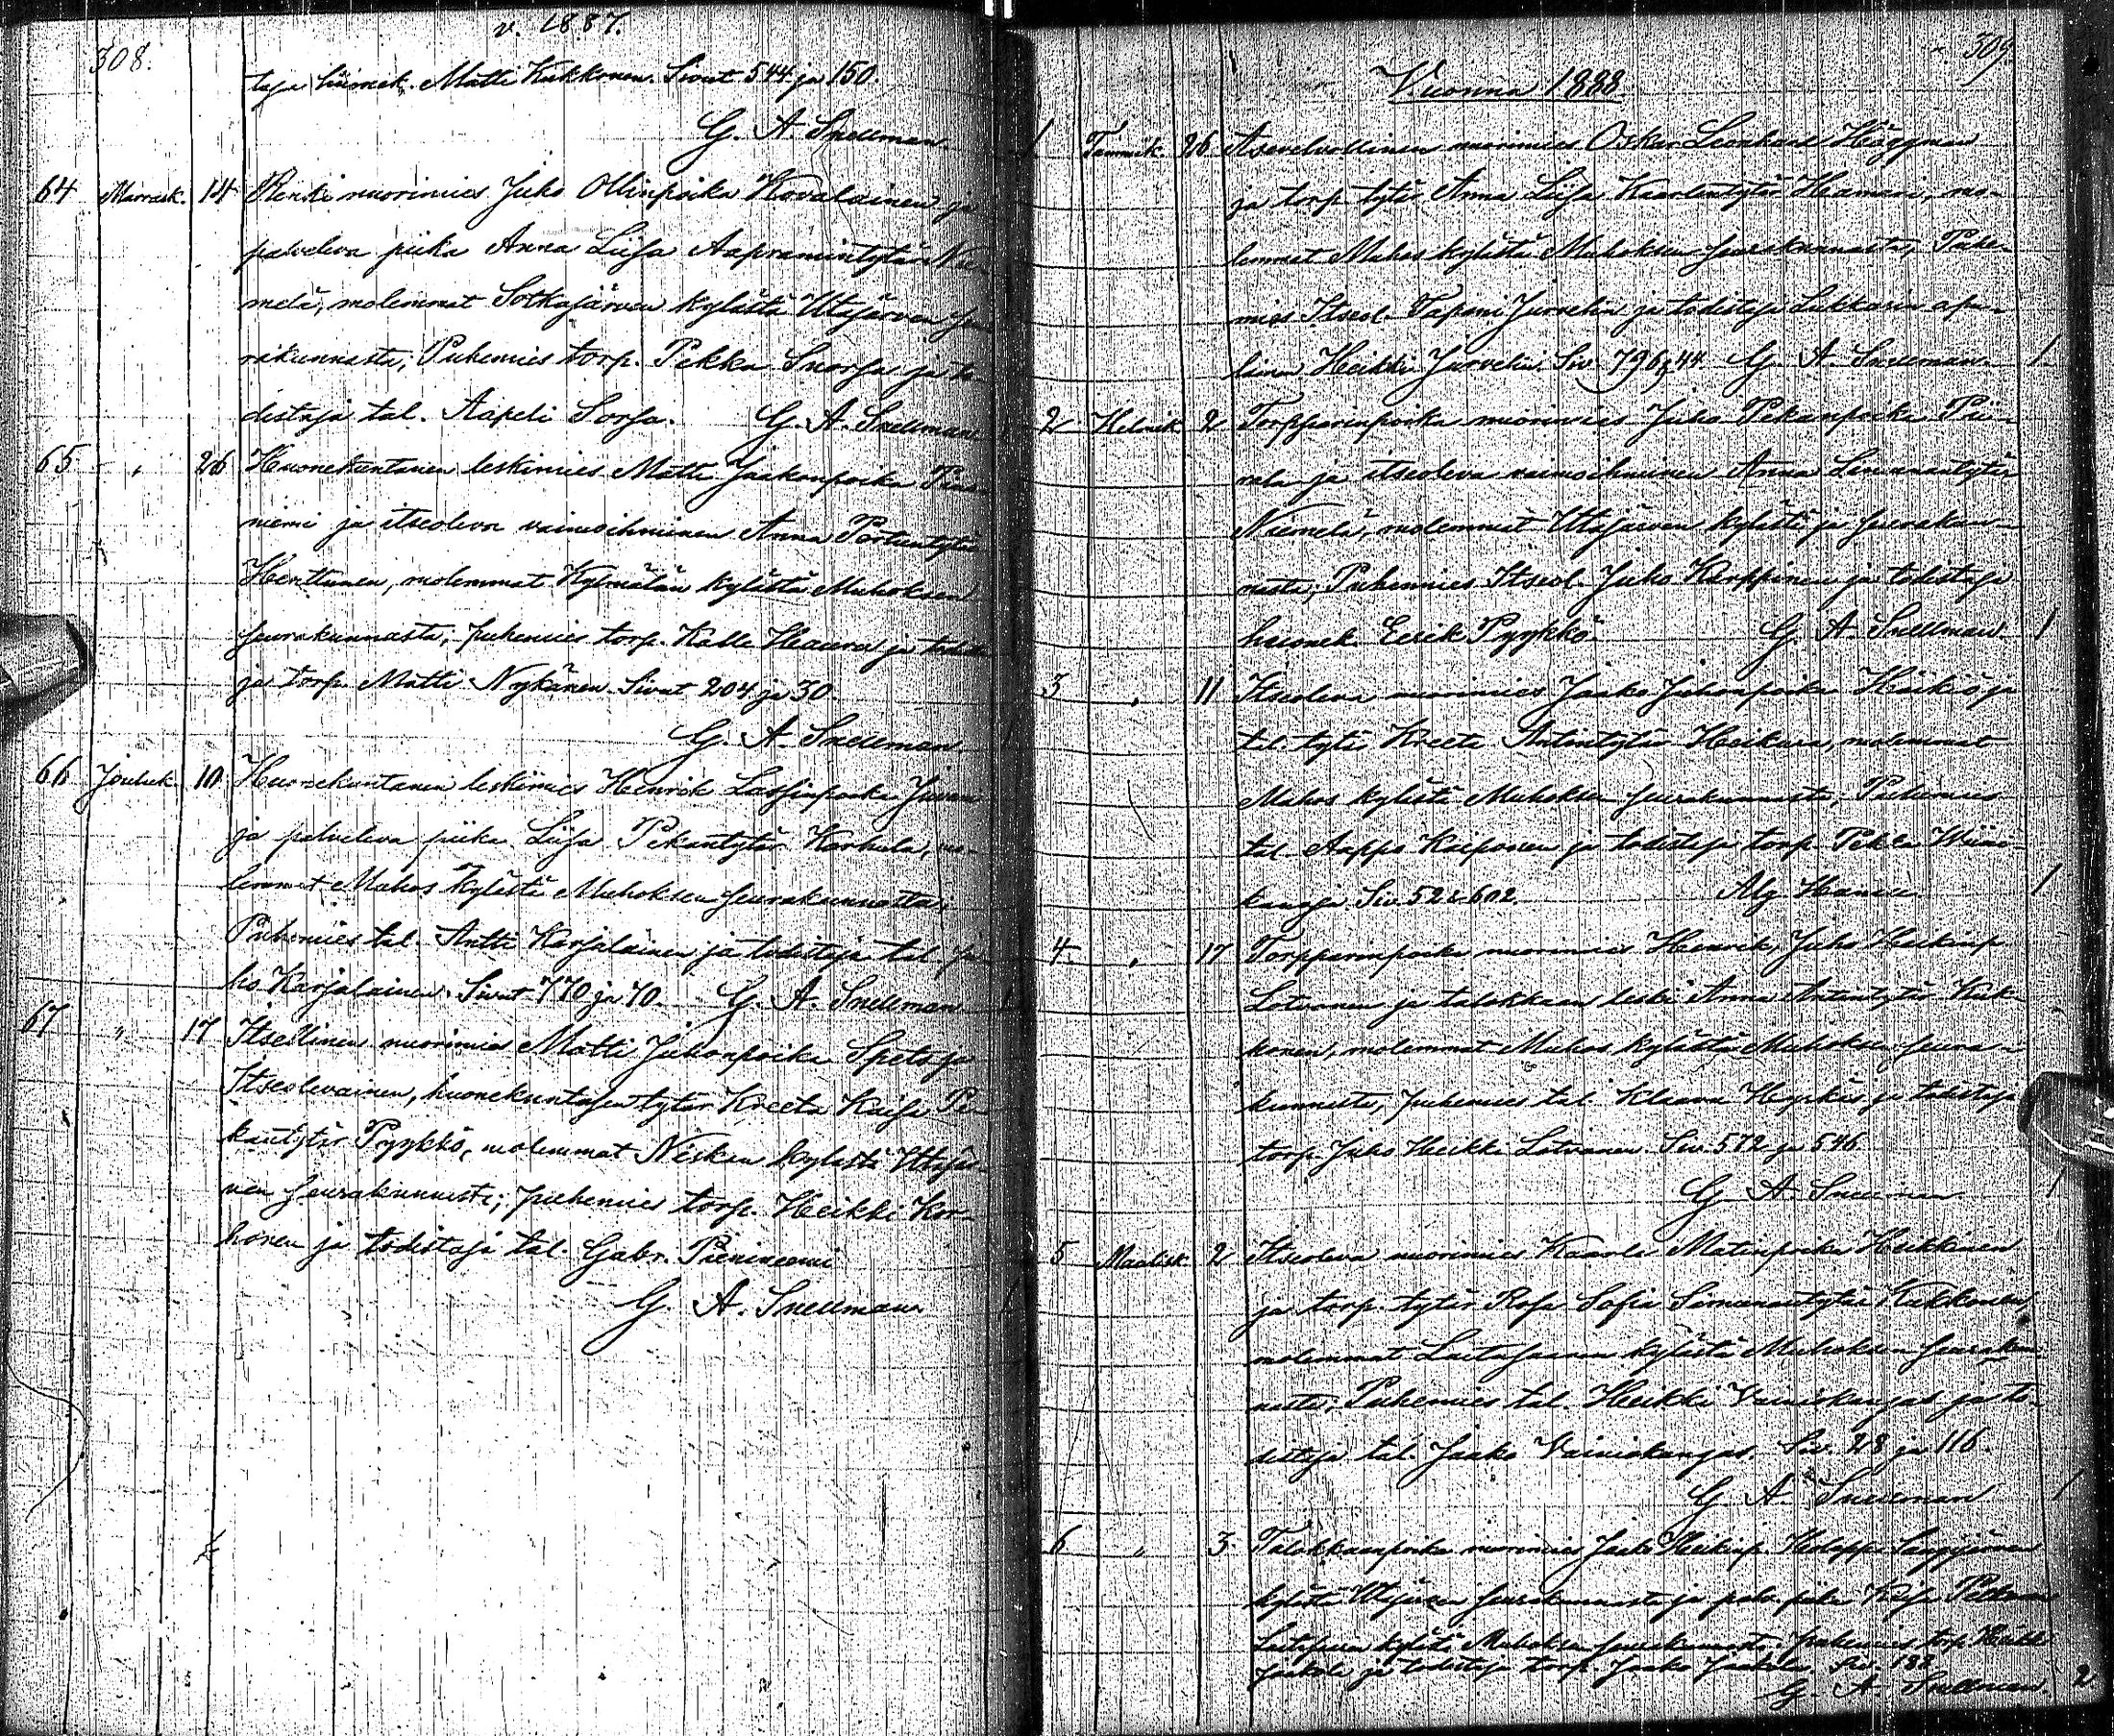 v. 1887.
308.
taja huonek. Matti Kukkonen. Sivut 544 ja 150.
G. A. Snellman.
64 Marrask. 14 Renki nuorimies Juho Ollinpoika Kovalainen ja
palveleva piika Anna Liisa Aapramintytär Nie-
melä, molemmat Sotkajärven kylästä Utajärven seu-
rakunnasta; Puhemies torp. Pekka Snorsa ja to-
distaja tal. Aapeli Sorsa. G. A. Snellman.
65 " 26 Huonekuntanen leskimies Matti Jaakonpoika Pien-
niemi ja itseoleva vaimoihminen Anna Perttuntytär
Henttunen, molemmat Kylmälän kylästä Muhoksen
seurakunnasta, puhemies torp. Kalle Haura ja todista-
ja torp. Matti Nykänen. Sivut 204 ja 30.
G. A. Snellman
66 Jouluk. 10 Huonekuntanen leskimies Henrik Lassinpoika Juvan
ja palveleva piika Liisa Pekantytär Karhula, mo-
lemmat Muhos kylästä Muhoksen seurakunnasta;
Puhemies tal. Antti Karjalainen ja todistaja tal. Ju-
ho Karjalainen. Sivut 770 ja 70. G. A. Snellman
67 " 17 Itsellinen nuorimies Matti Juhonpoika Spets ja
Itseolevainen, huonekuntasen tytär Kreeta Kaisa Pe-
kantytär Pyykkö, molemmat Niskan kylästä Utajär-
ven seurakunnasta; puhemies torp. Heikki Kor-
honen ja todistaja tal. Gabr. Pieniniemi
G. A. Snellman
309.
Vuonna 1888
1 Tammik. 26 Asevelvollinen nuorimies Oskar Leonhard Häggman
ja torp. tytär Anna Liisa Kaarlentytär Hamari, mo-
lemmat Muhos kylästä Muhoksen seurakunnasta, Puhe-
mies Itseol. Tapani Jurvelin ja todistaja Lukkarin apu-
lainen Heikki Jurvelin. Siv. 796, 44. G. A. Snellman. 1
2 Helmik. 2 Torpparinpoika nuorimies Juho Pekanpoika Pii-
rala ja itseoleva vaimoihminen Anna Simunantytär
Niemelä, molemmat Utajärven kylästä ja seurakun-
nasta; Puhemies Itseol. Juho Karppinen ja todistaja
huonek. Eerik Pyykkö. G. A. Snellman. 1
3 " 11 Itseoleva nuorimies Jaako Juhonpoika Heikiö ja
tal. tytär Kreeta Antintytär Heikura, molemmat
Muhos kylästä Muhoksen seurakunnasta; Puhemies
tal. Aappo Kaiponen ja todistaja torp. Pekka Wiini-
kangas. Siv. 52 & 602. 1
4. " 17 Torpparinpoika nuorimies Henrik, Juho Heikinp.
Lotvonen ja talokkaan leski Anna Antintytär Kuk-
konen, molemmat Muhos kylästä Muhoksen seura-
kunnasta, puhemies tal. Klaava Hyrkäs ja todistaja
torp. Juho Heikki Lotvonen. Siv. 572 ja 546.
G. A. Snellman 1
5 Maalisk. 2 Itseoleva nuorimies Kaarle Matinpoika Heikkinen
ja torp. tytär Rosa Sofia Simunantytär Kukkonen,
molemmat Laitasaaren kylästä Muhoksen seurakun-
nasta; Puhemies tal. Heikki Vainiokangas ja to-
distaja tal. Jaako Vainiokangas. Siv. 28 ja 116.
G. A. Snellman 1
6 " 3 Talokkaanpoika nuorimies Jaako Heikinp. Holappa Sanginjoen
kylästä Utajärven seurakunnasta ja palv. piika Kaisa Pekkanen
Laitasaaren kylästä Muhoksen seurakunnasta; puhemies torp. Heikki
Jaakola ja todistaja torp. Jaako Jaakola. Siv. 182.
G. A. Snellman. 2